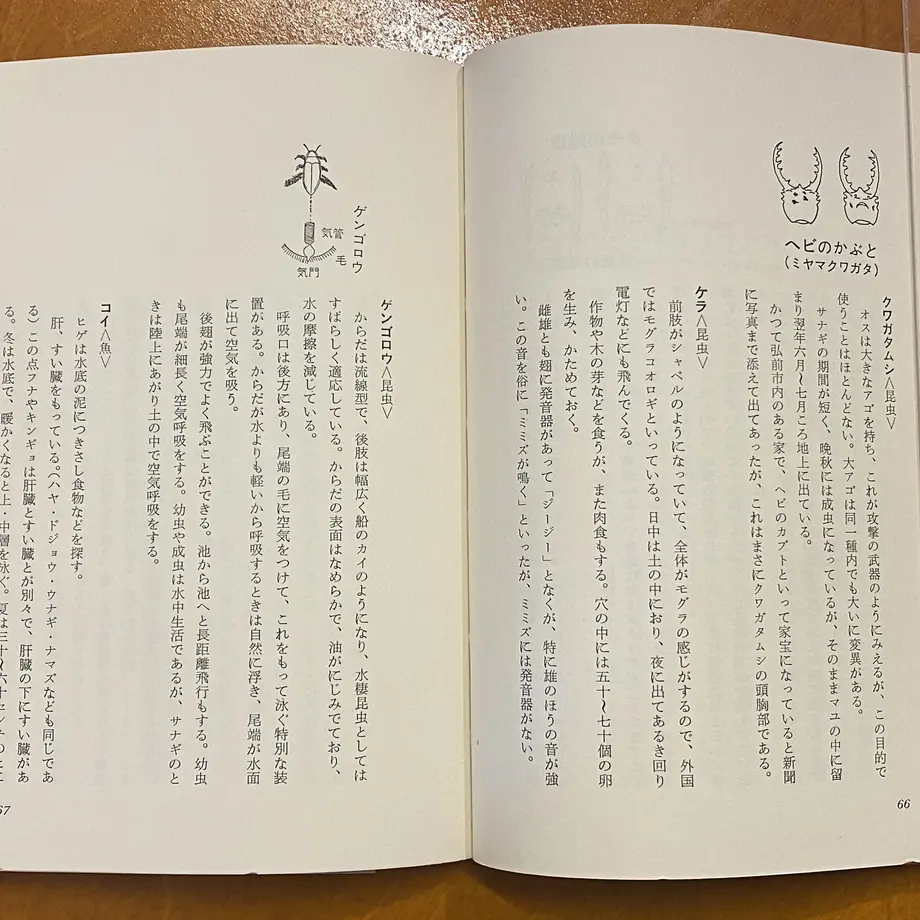 ヘビのかぶと
(ミヤマクワガタ)
クワガタムシ＜昆虫＞
オスは大きなアゴを持ち、これが攻撃の武器のようにみえるが、この目的で
使うことはほとんどない。大アゴは同一種内でも大いに変異がある。
サナギの期間が短く、晩秋には成虫になっているが、そのままマユの中に留
まり翌年六月〜七月ころ地上に出ている。
かつて弘前市内のある家で、ヘビのカブトといって家宝になっていると新聞
に写真まで添えて出てあったが、これはまさにクワガタムシの頭胸部である。
ケラ＜昆虫＞
前肢がシャベルのようになっていて、全体がモグラの感じがするので、外国
ではモグラコオロギといっている。日中は土の中におり、夜に出てあるき回り
電灯などにも飛んでくる。
作物や木の芽などを食うが、また肉食もする。穴の中には五十〜七十個の卵
を生み、かためておく。
雌雄とも翅に発音器があって「ジージー」となくが、特に雄のほうの音が強
い。この音を俗に「ミミズが鳴く」といったが、ミミズには発音器がない。
66
ゲンゴロウ
気管
毛
気門
ゲンゴロウ＜昆虫＞
からだは流線型で、後肢は幅広く船のカイのようになり、水棲昆虫としては
すばらしく適応している。からだの表面はなめらかで、油がにじみでており、
水の摩擦を減じている。
呼吸口は後方にあり、尾端の毛に空気をつけて、これをもって泳ぐ特別な装
置がある。からだが水よりも軽いから呼吸するときは自然に浮き、尾端が水面
に出て空気を吸う。
後翅が強力でよく飛ぶことができる。池から池へと長距離飛行もする。幼虫
も尾端が細長く空気呼吸をする。幼虫や成虫は水中生活であるが、サナギのと
きは陸上にあがり土の中で空気呼吸をする。
コイ＜魚＞
ヒゲは水底の泥につきさし食物などを探す。
肝、すい臓をもっている。(ハヤ・ドジョウ・ウナギ・ナマズなども同じであ
る)この点フナやキンギョは肝臓とすい臓とが別々で、肝臓の下にすい臓があ
る。冬は水底で、暖かくなると上・中層を泳ぐ。夏は三十〜六十センチのとこ
67